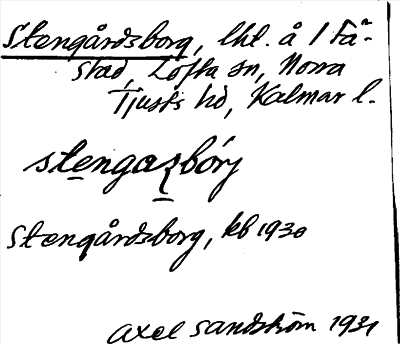 Stengårdsborg, lht. å 1 Få-
stad, Lofta sn, Norra
Tjusts hd, Kalmar l.
stengaʂbórj
Stengårdsborg, kb 1930
Axel Sandström 1931